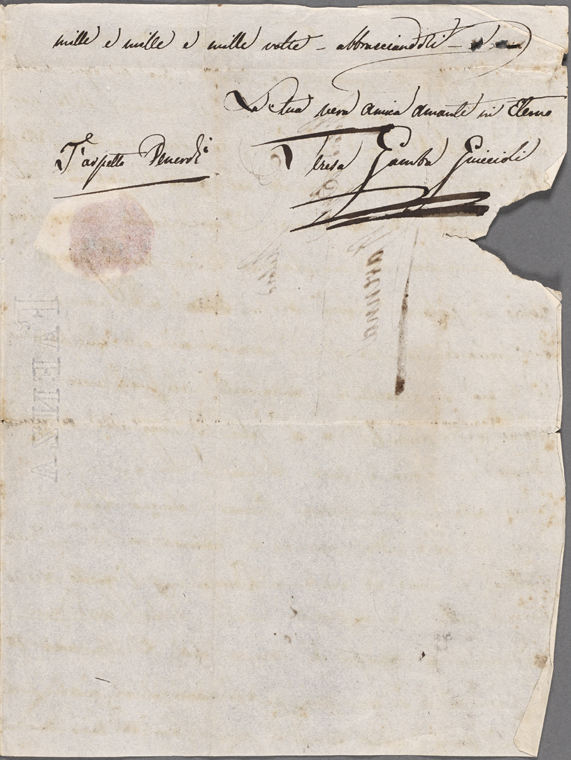 mille e mille e mille volte - abbracciandoti -
La tua vera amica amante in Eterno
T'aspetto Venerdì
Teresa Gamba Guiccioli
FAENZA